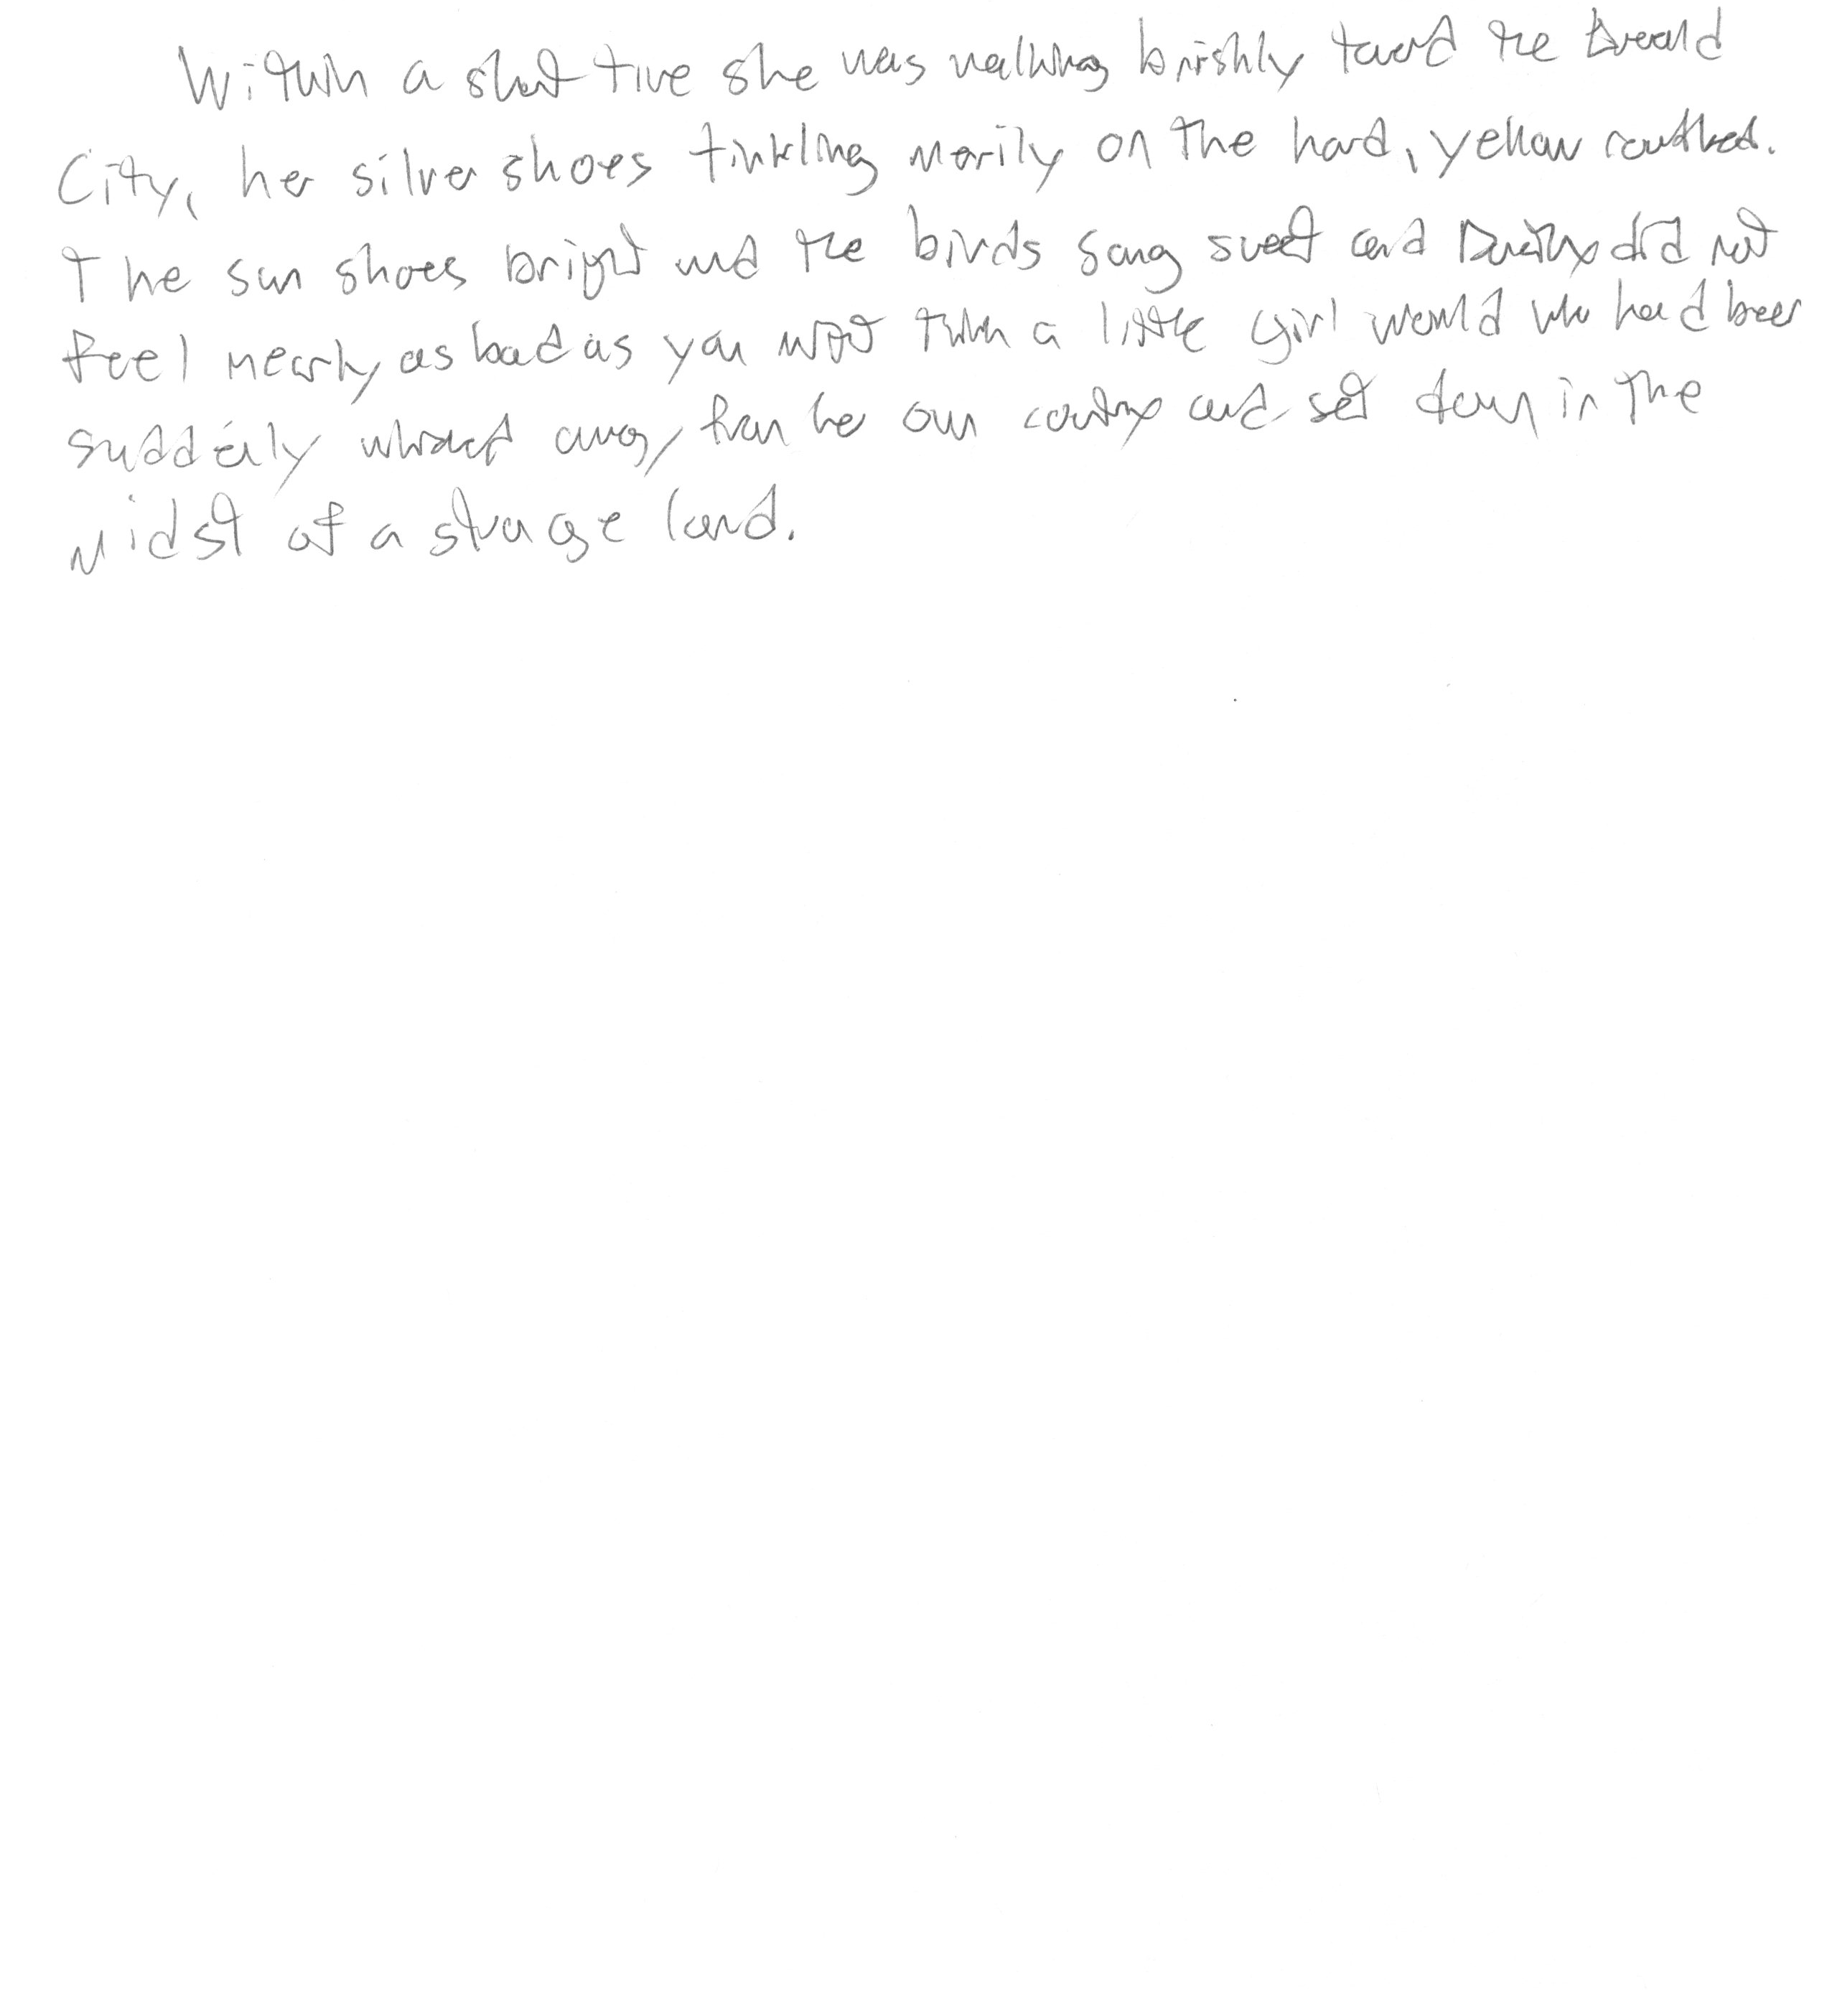 Within a short time she was walking briskly toward the Emerald
City, her silver shoes tinkling merily on the hard, yellow roadbed.
The sun shoes bright and the birds sang sweet and Dorothy did not
feel nearly as bad as you might think a little girl would who had been
suddenly whisked away from her own country and set down in the
midst of a strange land.